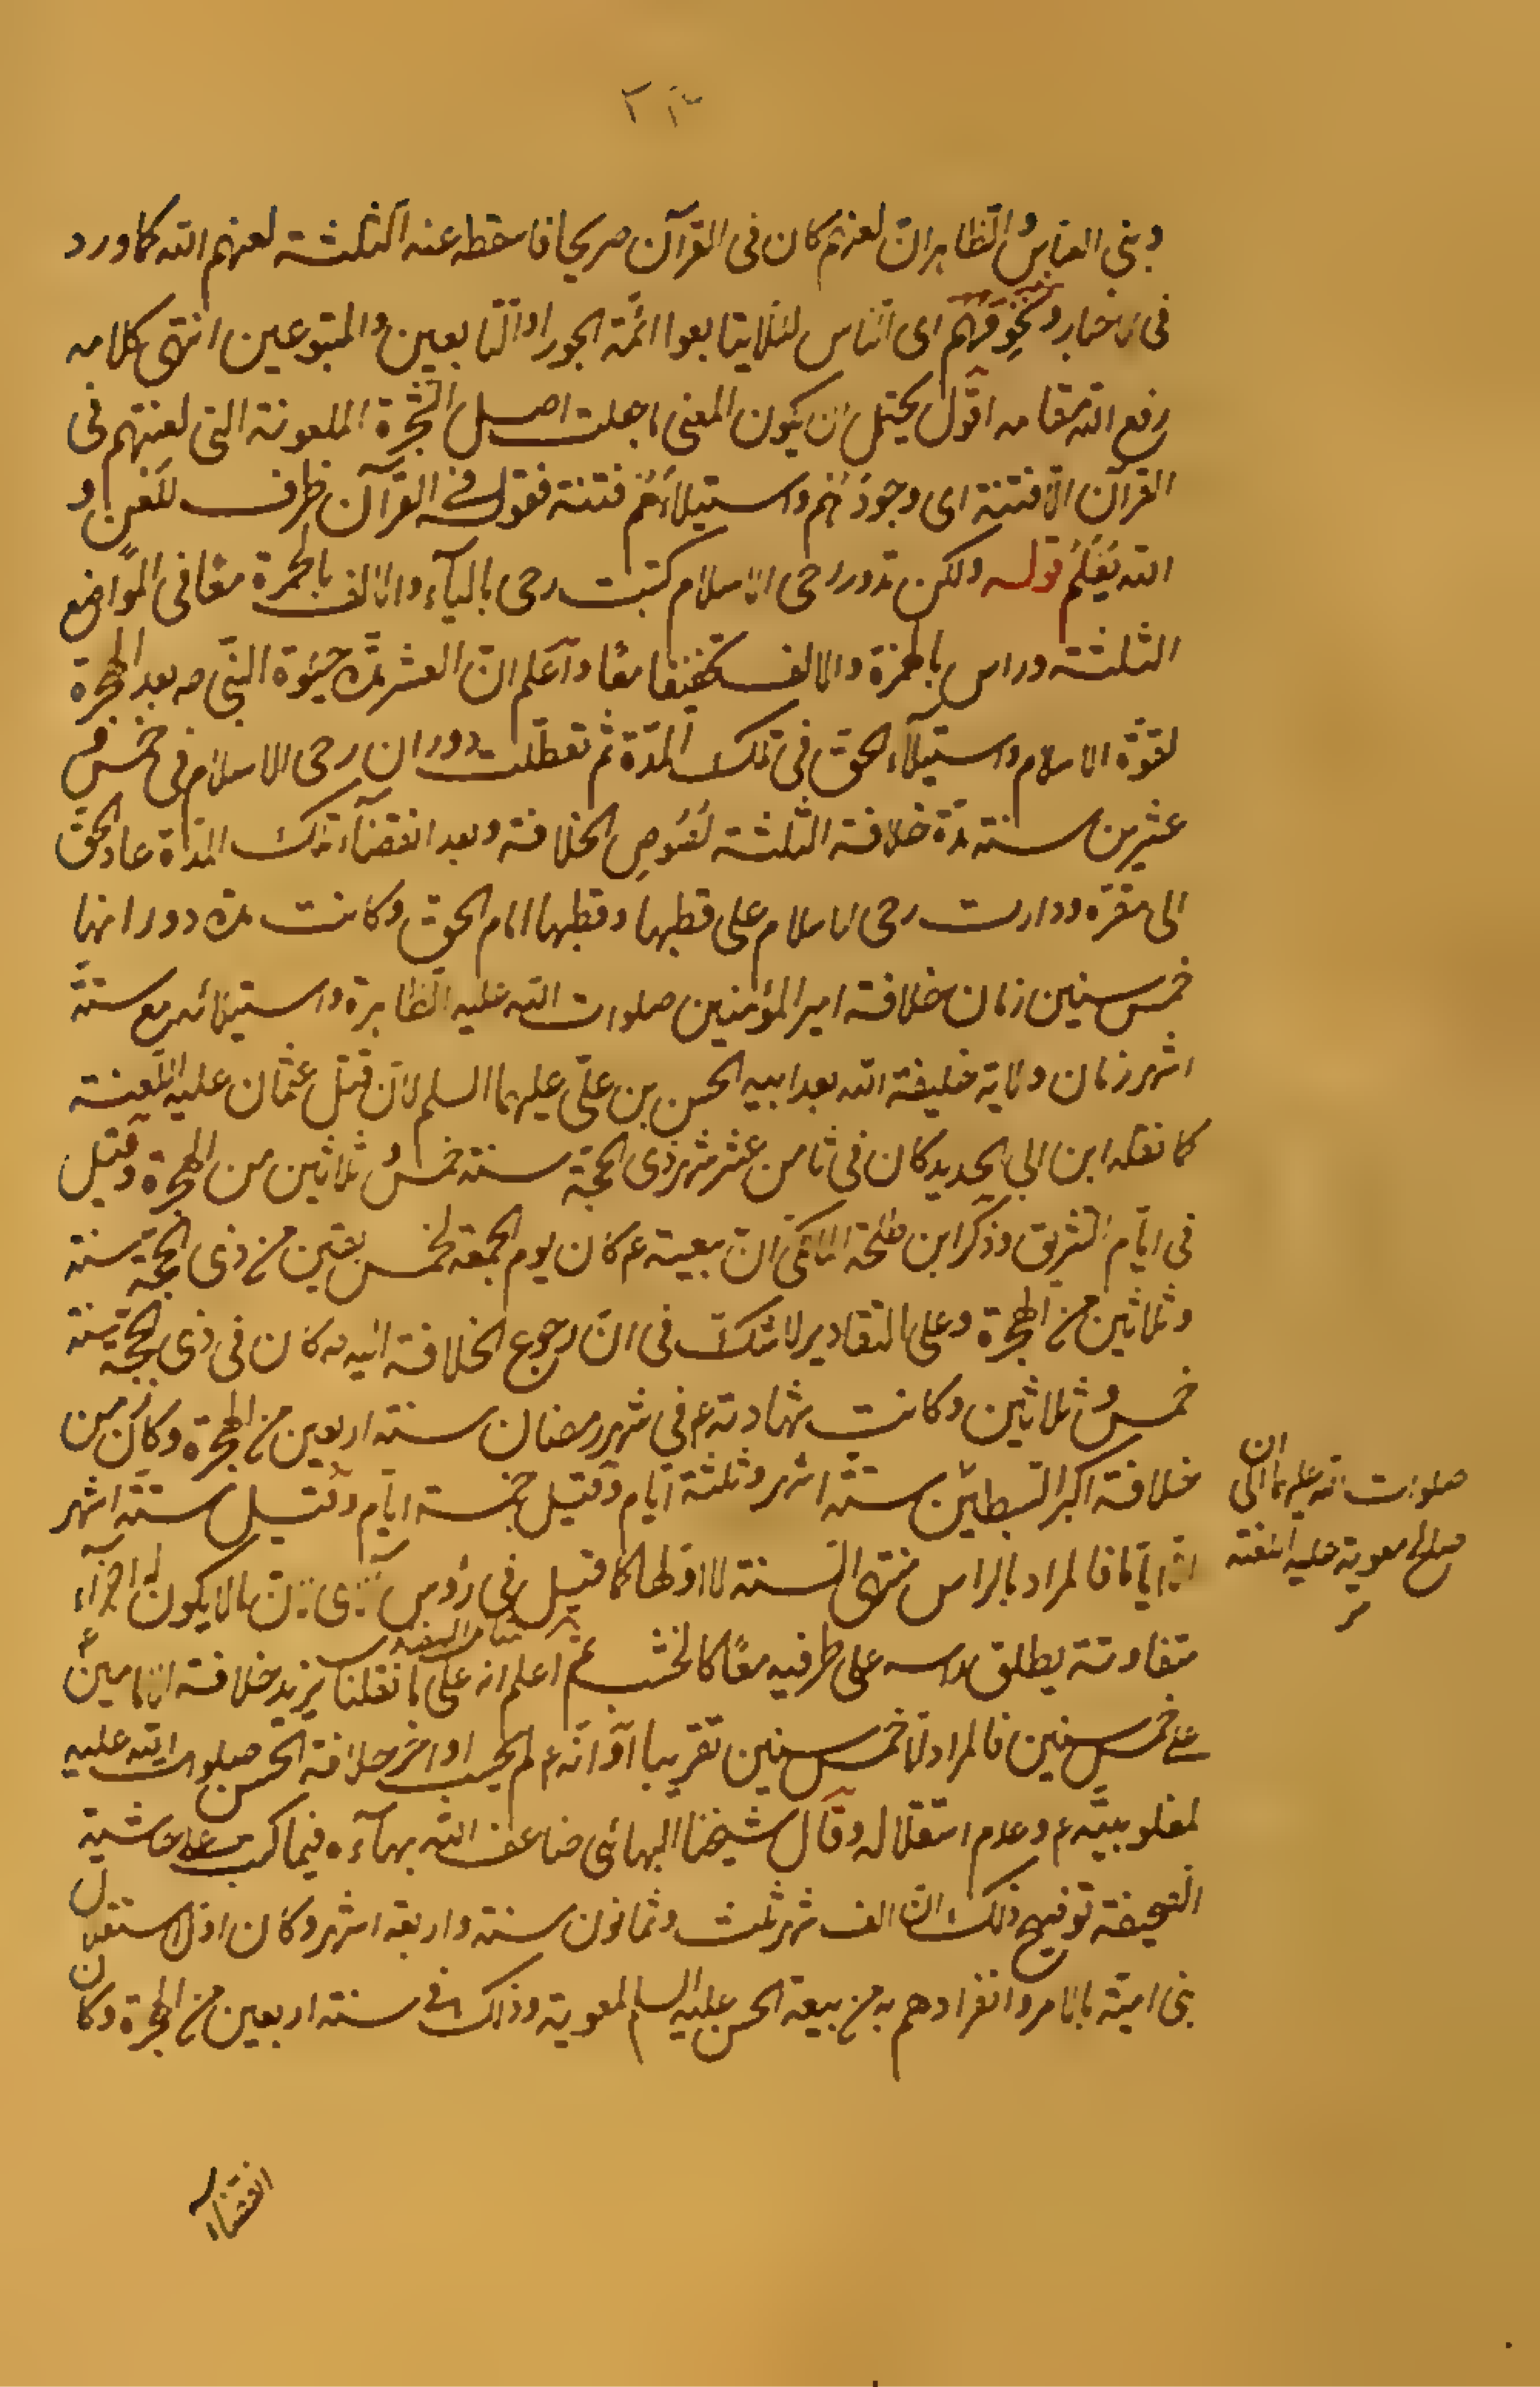 و بنی العباس و الظاهر ان لعنهم كان فی القرآن صریحا فاسقطه عنه الثلثة لعنهم الله كما ورد
فی الاخبار و نخوفهم ای الناس لئلا یتابعوا ائمة الجور او التابعین و المتبوعین انتهی كلامه
رفع الله مقامه اقول یحتمل ان یكون المعنی ما جعلت اصل الشجرة الملعونة التی لعنتهم فی
القرآن الا فتنة ای وجودهم و استیلائهم فتنة فقوله فی القرآن ظرف للعن و
الله یعلم قوله و لكن تدور رحی الاسلام كتبت رحی بالیآء و الالف بالحمرة معا فی المواضع
الثلثة و راس بالهمزة و الالف تخفیفا معا و اعلم ان العشر مدة حیوة النبی صه بعد الهجرة
لقوة الاسلام و استیلآء الحق فی تلك المدة ثم تعطلت دوران رحی الاسلام فی خمس و
عشرین سنة مدة خلافة الثلثة لصوص الخلافة و بعد انقضآء تلك المدة عاد الحق
الی مقره و دارت رحی الاسلام علی قطبها و قطبها امام الحق و كانت مدة دورانها
خمس سنین زمان خلافة امیر المؤمنین صلوات الله علیه الظاهرة و استیلائه مع ستة
اشهر زمان ولایة خلیفة الله بعد ابیه الحسن بن علی علیهما السلم لان قتل عثمان علیه اللعنة
كما نقله ابن ابی الحدید كان فی ثامن عشر شهر ذی الحجة سنة خمس و ثلاثین من الهجرة و قیل
فی ایام التشریق و ذكر ابن طلحة المالكی ان بیعته ع كان یوم الجمعة لخمس بقین من ذی الحجة سنة
و ثلاثین من الهجرة و علی التقادیر لا شك فی ان رجوع الخلافة الیه ع كان فی ذی الحجة سنة
خمس و ثلاثین و كانت شهادته ع فی شهر رمضان سنة اربعین من الهجرة و كان زمن
خلافة اكبر السبطین ستة اشهر و ثلثة ایام و قیل خمسة ایام و قیل ستة اشهر
الا ایاما فالمراد بالراس منتهی السنة لا اولها كما قیل فی رؤس الآی ما لا یكون له اجزآء
متفاوتة یطلق راسه علی طرفیه معا كالخشب ثم اعلم انه علی ما نقلنا یزید خلافة الامامین ع
علی خمس سنین فالمراد اما خمس سنین تقریبا او انه ع لم یحسب اواخر خلافة الحسن صلوات الله علیه
لمغلوبیته ع و عدم استقلاله و قال شیخنا البهائی ضاعف الله بهآءه فیما كتب علی حاشیة
الصحیفة توضیح ذلك ان الف شهر ثلث و ثمانون سنة و اربعة اشهر و كان اول استقلال
بنی امیة بالامر و انفرادهم به من بیعة الحسن علیه السلم لمعویة و ذلك فی سنة اربعین من الهجرة و كان
صلوات الله علیهما الی ان
صلح معویة علیه اللعنة
انقضاء